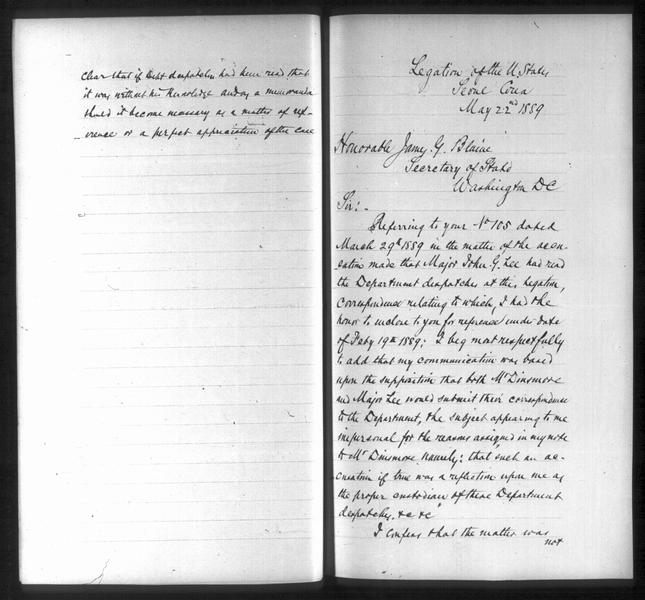 clear that if Dept despatches had been read that
it was without his knowledge and as a memoranda
should it become necessary as a matter of ref-
-erence or a perfect appreciation of the case
Legation of the U. States
Seoul Corea
May 22nd 1889
Honorable James G. Blaine
Secretary of State
Washington DC
Sir:-
Referring to your No 105 dated
March 29th 1889 in the matter of the accu-
-sation made that Major John G. Lee had read
the Department despatches at this Legation,
correspondence relating to which, I had the
honor to inclose to you for reference under date
of Feby 19th 1889; I beg most respectfully
to add that my communication was based
upon the supposition that both Mr Dinsmore
and Major Lee would submit their correspondence
to the Department, the subject appearing to me
impersonal for the reasons assigned in my note
to Mr Dinsmore namely: that "such an ac-
cusation if true was a reflection upon me as
the proper custodian of these Department
despatches. &c &c"
I confess that the matter was
not